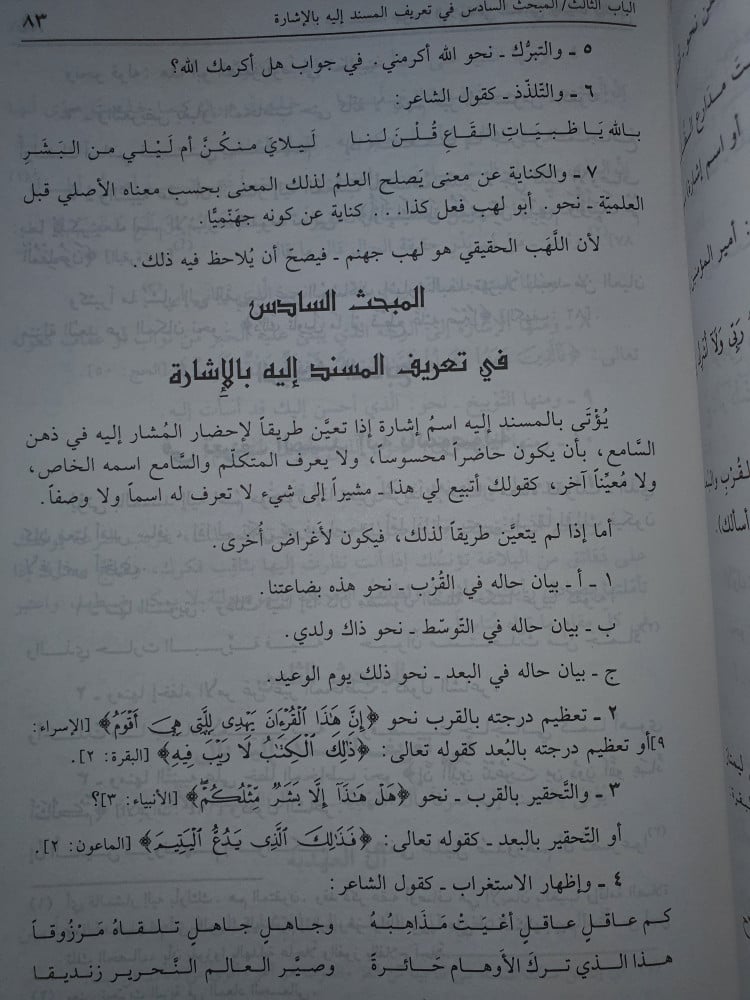 الباب الثالث/المبحث السادس في تعريف المسند إليه بالإشارة
٨٣
٥ ـ والتبرُّك ـ نحو الله أكرمني. في جواب هل أكرمك الله؟
٦ ـ والتّلذّذ ـ كقول الشاعر:
بالله يَا ظَبيَاتِ القَاعِ قُلْنَ لنا لَيلايَ منكُنَّ أم لَيْلي من البَشَرِ
٧ ـ والكناية عن معنى يَصلح العلمُ لذلك المعنى بحسب معناه الأصلي قبل
العلميّة ـ نحو. أبو لهب فعل كذا... كناية عن كونه جهَنّمِيًّا.
لأن اللَّهَب الحقيقي هو لهب جهنم ـ فيصحّ أن يُلاحظ فيه ذلك.
المبحث السادس
في تعريف المسند إليه بالإِشارة
يُؤْتَى بالمسند إليه اسمُ إشارة إذا تعيَّن طريقاً لإحضار المُشار إليه في ذهن
السَّامع، بأن يكون حاضراً محسوساً، ولا يعرف المتكلّم والسَّامع اسمه الخاص،
ولا مُعيِّناً آخر، كقولك أتبيع لي هذا ـ مشيراً إلى شيء لا تعرف له اسماً ولا وصفاً.
أما إذا لم يتعيَّن طريقاً لذلك، فيكون لأغراض أُخرى.
١ ـ أ ـ بيان حاله في القُرْب ـ نحو هذه بضاعتنا.
ب ـ بيان حاله في التّوسّط ـ نحو ذاك ولدي.
ج ـ بيان حاله في البعد ـ نحو ذلك يوم الوعيد.
٢ ـ تعظيم درجته بالقرب نحو ﴿إِنَّ هَٰذَا الْقُرْءَانَ يَهْدِى لِلَّتِى هِىَ أَقْوَمُ﴾ [الإسراء:
٩] أو تعظيم درجته بالبُعد كقوله تعالى: ﴿ذَٰلِكَ الْكِتَٰبُ لَا رَيْبَ فِيهِ﴾ [البقرة: ٢].
٣ ـ والتَّحقير بالقرب ـ نحو ﴿هَلْ هَٰذَا إِلَّا بَشَرٌ مِّثْلُكُمْ﴾ [الأنبياء: ٣]؟
أو التّحقير بالبعد ـ كقوله تعالى: ﴿فَذَٰلِكَ الَّذِى يَدُعُّ الْيَتِيمَ﴾ [الماعون: ٢].
٤ ـ وإظهار الاستغراب ـ كقول الشاعر:
كم عاقلٍ عاقلٍ أعْيَتْ مَذَاهِبُهُ وجاهلٍ جاهلٍ تلقاهُ مَرْزُوقاً
هذا الذي تركَ الأوهام حَائرةً وصيَّر العالم النَّحرير زنديقا
مدارع
أو اسم
أمير المؤمنين
القُرْب
أسالك).